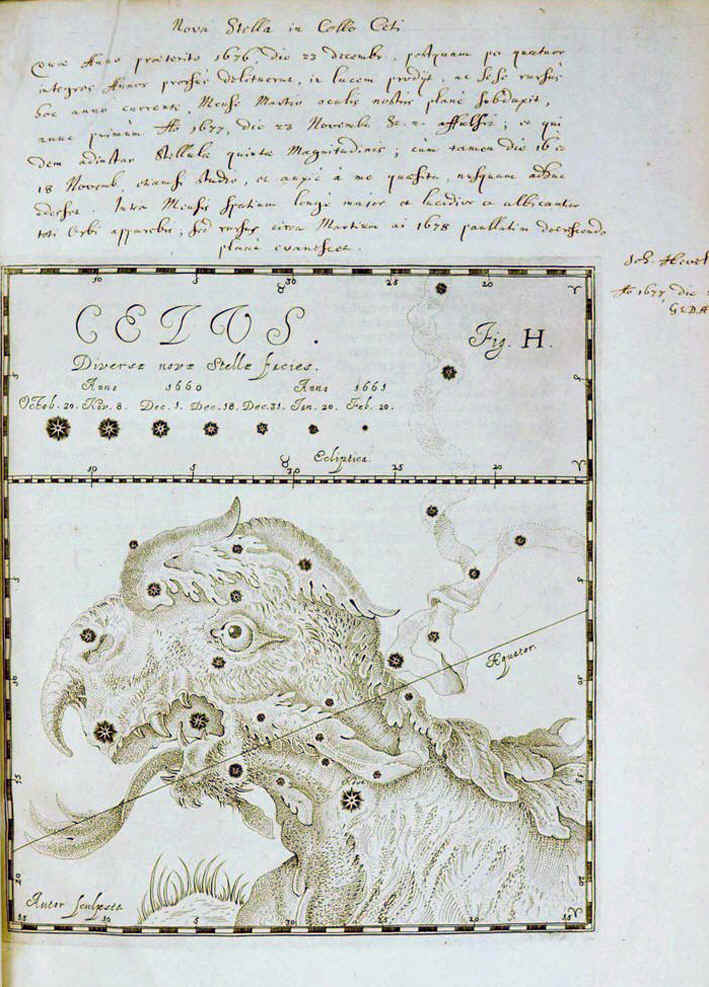 Nova Stella in Collo Ceti
Quae Anno praeterito 1676, die 23 decembr, postquam per quatuor
integros Annos prorsus delituerat, in lucem prodijt, ac sese rursus
hoc anno currente, Mense Martio oculis nostris planè subduxit,
nunc primùm Ao 1677, die 22 Novemb. affulsit; et qui
dem adinstar Stellulae quintae Magnitudinis; cùm tamen die 16 et
18 Novemb. à me quaesita, nusquam adhuc
Intra Mensis spatium longè major et lucidior
toti Orbi apparebit; sed rursus circa Martium ai 1678 paullatim decrescendo
planè evanescet.
Joh. Hevel
Ao 1677, die
GEDA
10 5 ♉ 30 25 20 ♈
CETUS.
Fig. H.
Diversae novae Stellae facies.
Anno 1660 Anno 1661
Octob. 20. Nov. 8. Dec. 1. Dec. 18. Dec. 31. Jan. 20. Feb. 20.
Ecliptica
10 5 ♉ 30 25 20 ♈
Æquator
Autor sculpsit
15 10 5 30 25 20 15